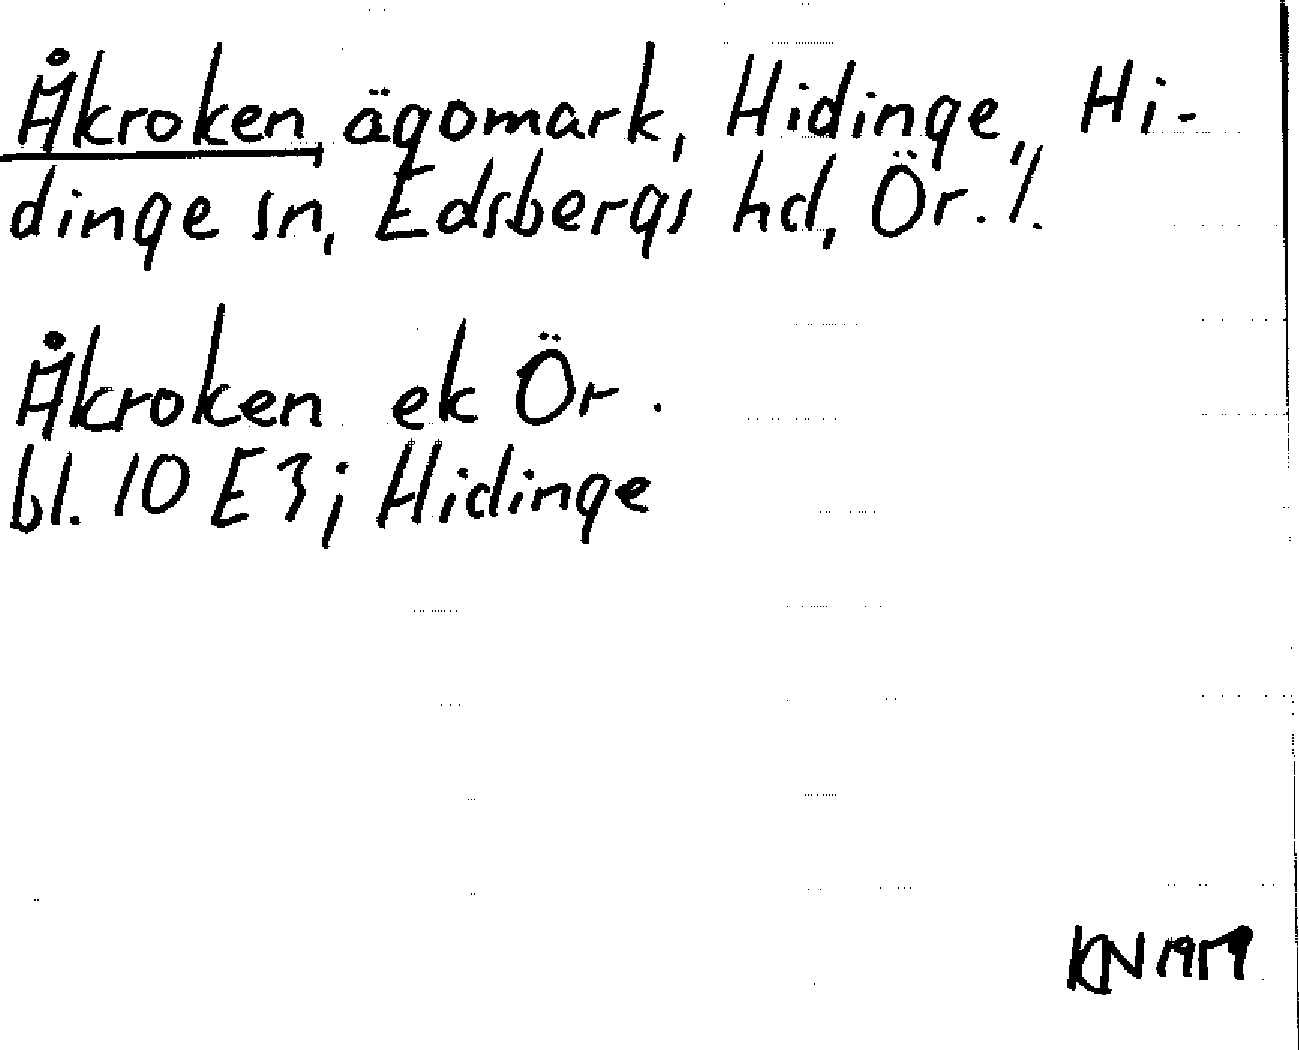 Åkroken, ägomark, Hidinge, Hi-
dinge sn, Edsbergs hd, Ör. l.
Åkroken ek Ör.
bl. 10 E 3; Hidinge
KN